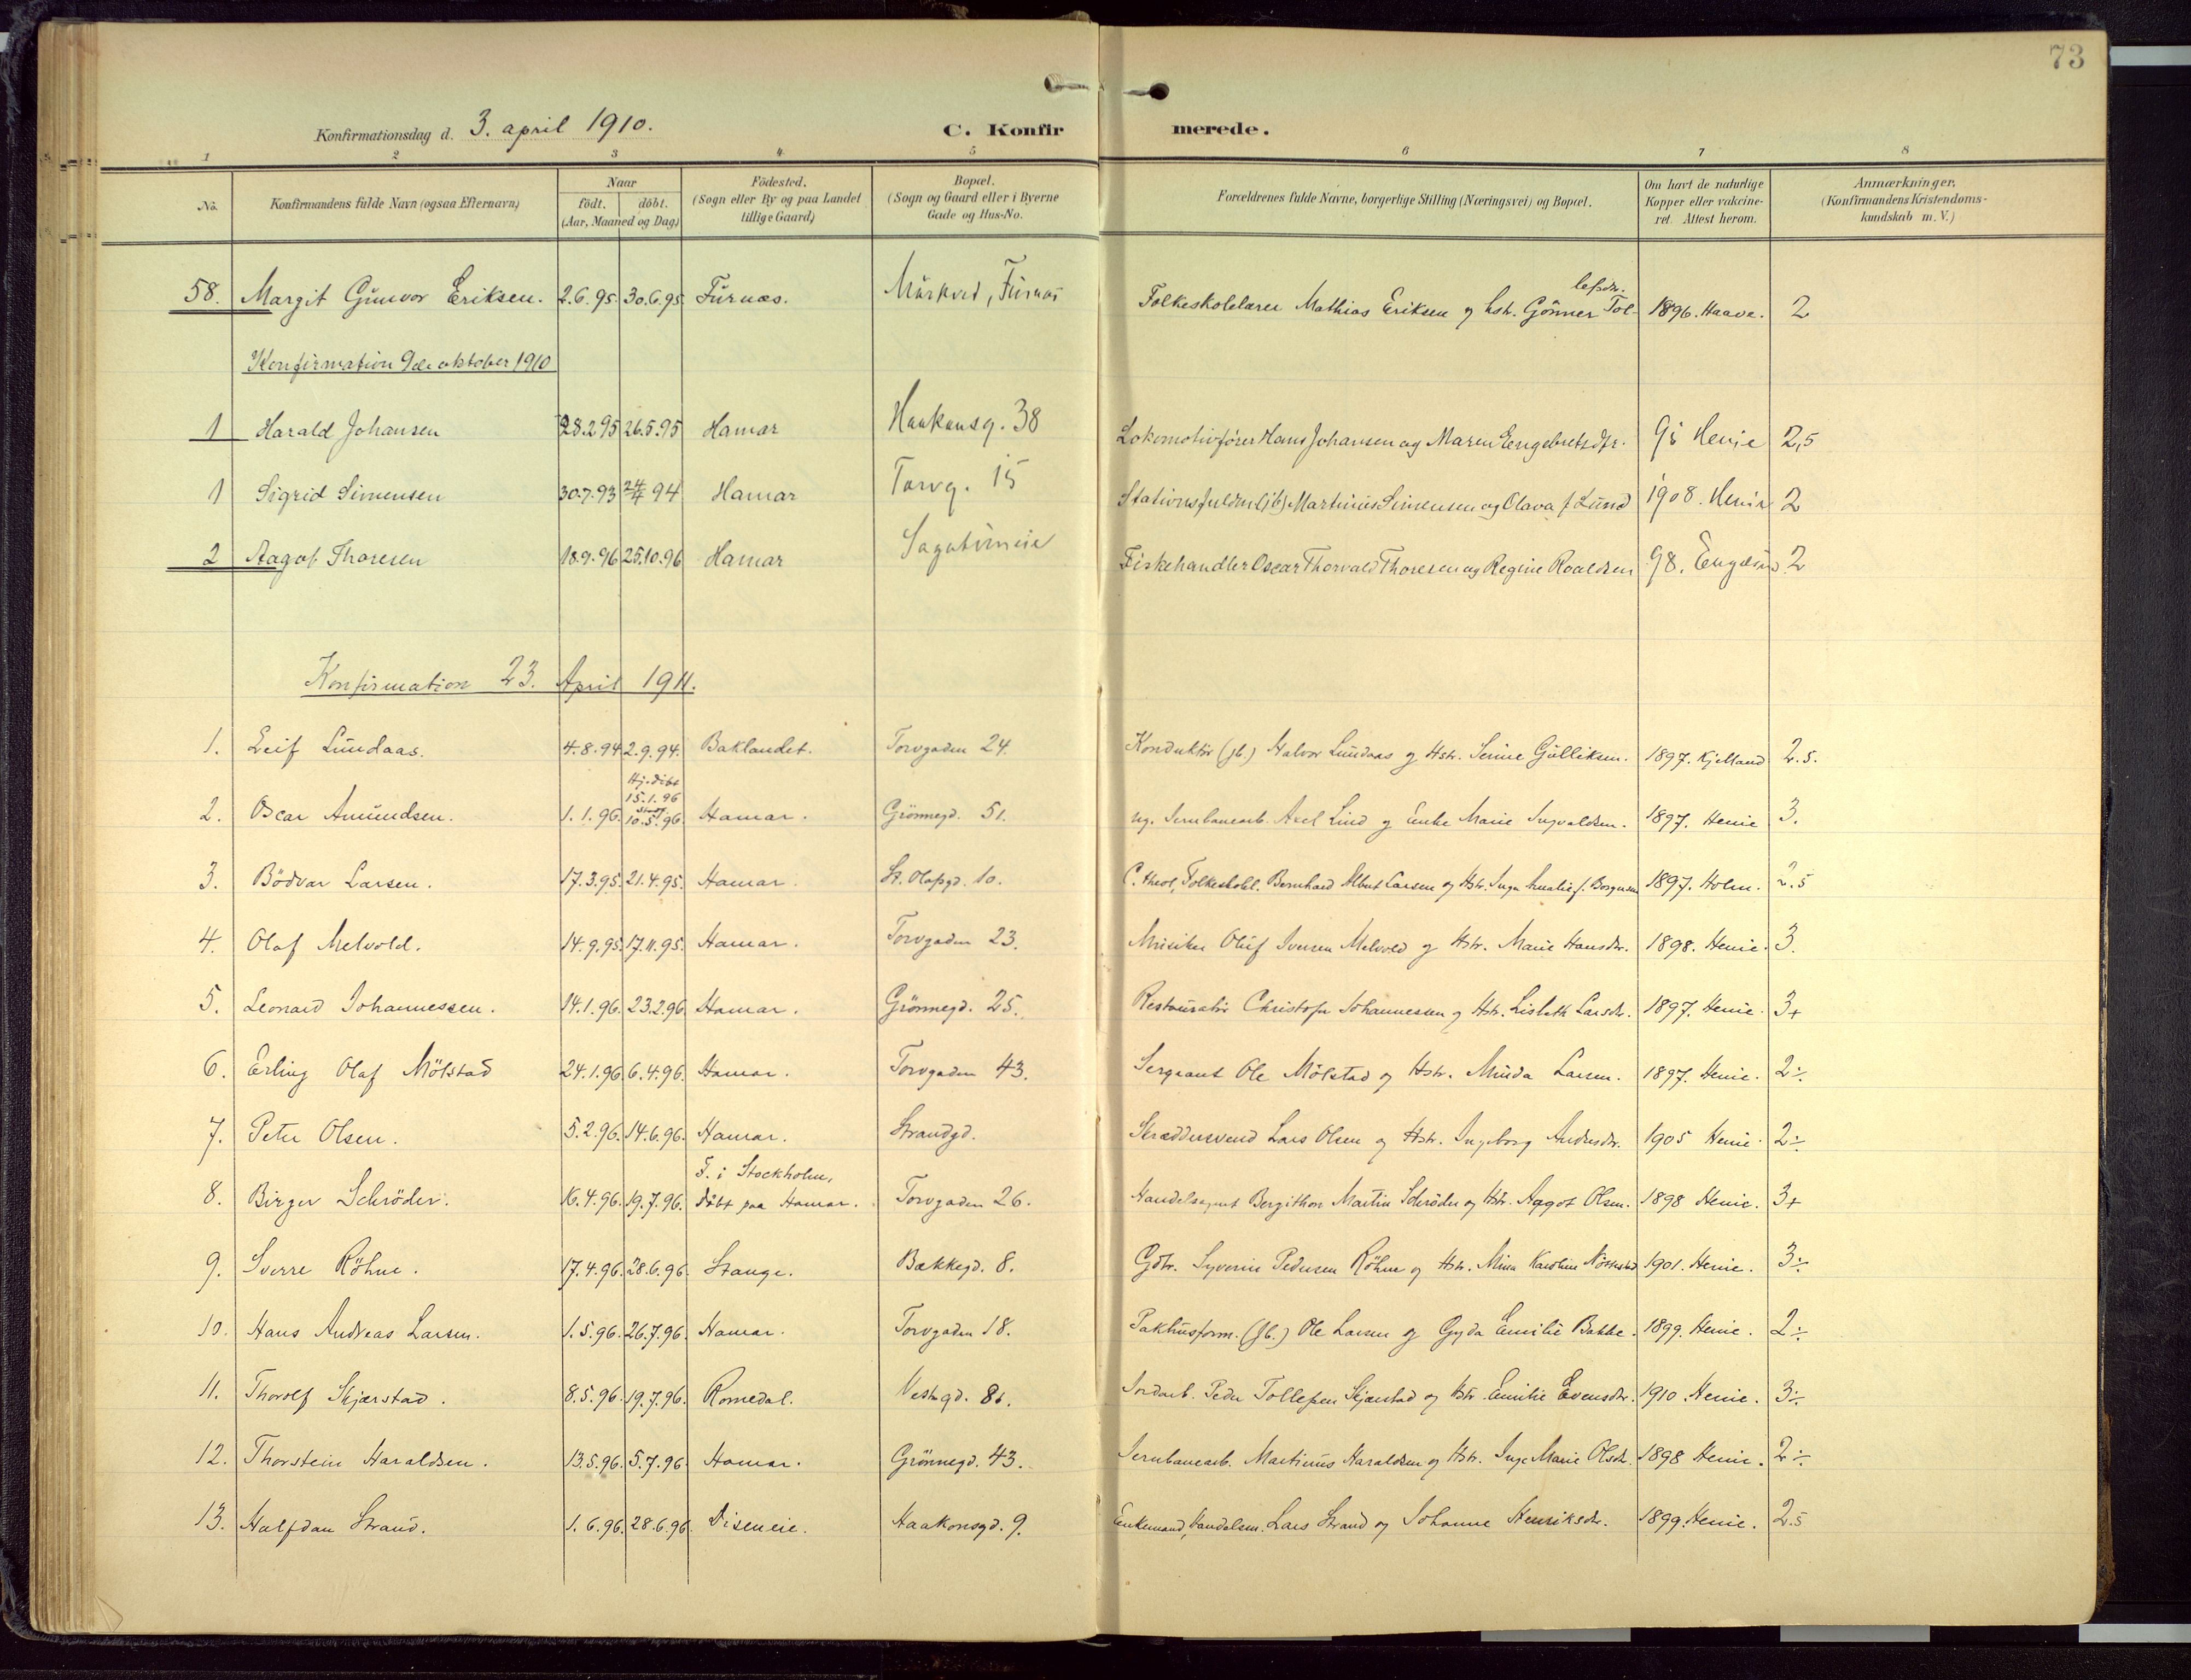 73
Konfirmationsdag d. 3. april 1910. C. Konfirmerede.
1 2 3 4 5 6 7 8
No. Konfirmandens fulde Navn (ogsaa Efternavn) Naar födt. döbt. (Aar, Maaned og Dag) Födested. (Sogn eller By og paa Landet tillige Gaard) Bopæl. (Sogn og Gaard eller i Byerne Gade og Hus-No. Forældrenes fulde Navne, borgerlige Stilling (Næringsvei) og Bopæl. Om havt de naturlige Kopper eller vakcineret. Attest herom. Anmærkninger. (Konfirmandens Kristendomskundskab m. V.)
58. Margit Gunvor Eriksen. 2.6.95 30.6.95 Furnæs. Furnæs Folkeskolelærer Mathias Eriksen og hstr. Gönner Tollefsdtr. 1896. Haave. 2
Konfirmation 9de oktober 1910
1 Harald Johansen 28.2.95 26.5.95 Hamar Haakonsg. 38 Lokomotivfører Hans Johansen og Maren Eengebretsdtr. Henie 2,5
1 Sigrid Simensen 30.7.93 24/4 94 Hamar Torvg. 15 Martinius Simensen og Olava f Lund 1908. Henie 2
2 Aagot Thoresen 18.9.96 25.10.96 Hamar Fiskehandler Oscar Thorvald Thoresen og Regine Roaldsen 98. 2
Konfirmation 23. April 1911.
1. Leif Lundaas. 4.8.94 2.9.94. Baklandet. Torvgaden 24. Konduktör (jb.) Halvor Lundaas og Hstr. Serine Gulliksen. 1897. Kjelland 2.5.
2. Oscar Amundsen. 1.1.96. Hj. döbt 15.1.96 10.5.96. Hamar. Grönnegd. 51. ug. Jernbanearb. Axel Lind og Enke Marie Ingvaldsen. 1897. Henie 3.
3. Bödvar Larsen. 17.3.95. 21.4.95. Hamar. St. Olafsgd. 10. C. theol., Folkeskolel. Bernhard Albert Larsen og Hstr. Inga Amalie f. Borgersen 1897. Holm. 2.5
4. Olaf Melvold. 14.9.95. 17.11.95. Hamar. Torvgaden 23. Musiker Oluf Iversen Melvold og Hstr. Marie Hansdtr. 1898. Henie. 3.
5. Leonard Johannessen. 14.1.96. 23.2.96 Hamar. Grönnegd. 25. Restauratör Christofer Johannessen og Hstr. Lisbeth Larsdtr. 1897. Henie. 3+
6. Erling Olaf Mölstad 24.1.96 6.4.96. Hamar. Torvgaden 43. Sergeant Ole Mölstad og Hstr. Minda Larsen. 1897. Henie. 2÷
7. Peter Olsen. 5.2.96. 14.6.96. Hamar. Strandgd. Skræddersvend Lars Olsen og Hstr. Ingeborg Andersdtr. 1905 Henie. 2÷
8. Birger Schröder. 16.4.96. 19.7.96. F. i Stockholm, döbt paa Hamar. Torvgaden 26. Handelsagent Bergithon Martin Schröder og Hstr. Aagot Olsen. 1898 Henie. 3+
9. Sverre Röhne. 17.4.96. 28.6.96 Stange. Bækkegd. 8. Gdbr. Syverin Pedersen Röhne og Hstr. Mina Karoline 1901. Henie. 3÷
10. Hans Andreas Larsen. 1.5.96. 26.7.96. Hamar. Torvgaden 18. Pakhusform. (jb.) Ole Larsen og Gyda Emilie Bakke. 1899. Henie. 2÷
11. Thorolf Skjærstad. 8.5.96. 19.7.96. Romedal. Vestregd. Jordarb. Peder Tollefsen Skjærstad og Hstr. Emilie Evensdtr. 1910. Henie. 3÷
12. Thorstein Haraldsen. 13.5.96. 5.7.96. Hamar. Grönnegd. 43. Jernbanearb. Martinus Haraldsen og Hstr. Inge Marie Olsdtr. 1898 Henie. 2÷
13. Halfdan Strand. 1.6.96. 28.6.96. Diseneie. Haakonsgd. 9. Enkemand, Handelsm. Lars Strand og Johanne Henriksdtr. 1899. Henie. 2.5